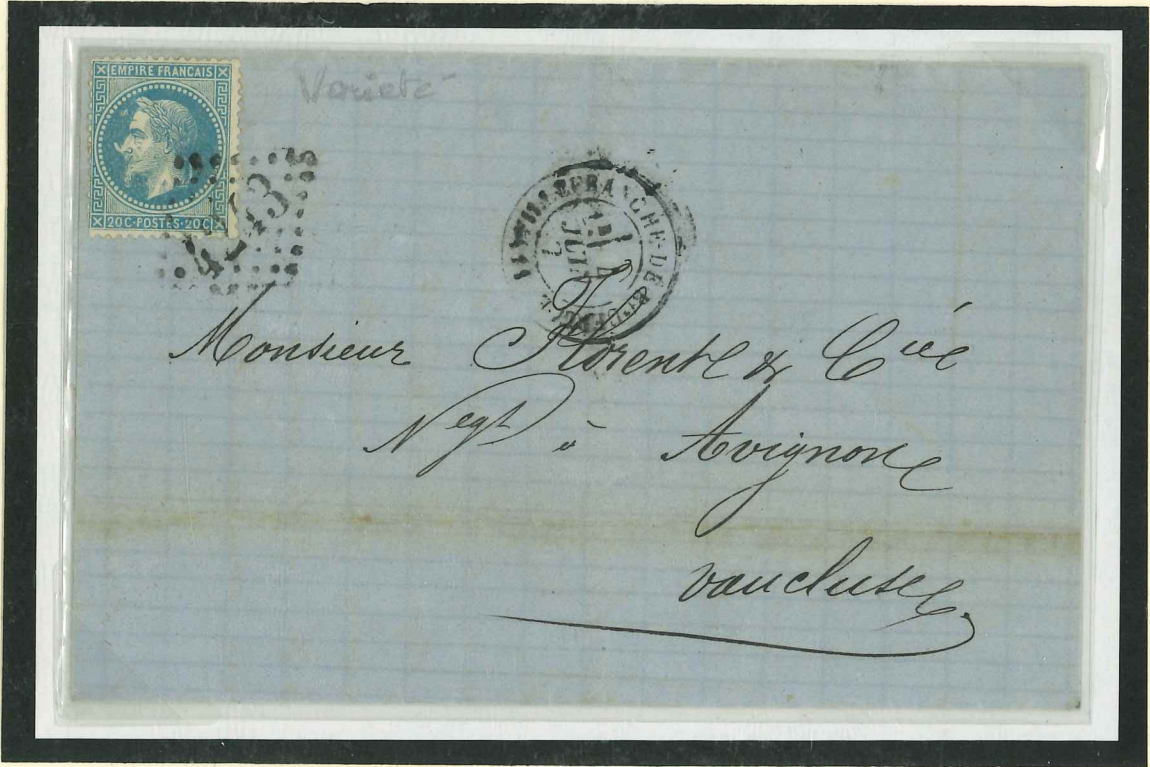 EMPIRE FRANÇAIS
20C·POSTES·20C
Varieté
VILLEFRANCHE-DE
Monsieur Florent & Cie
Negt à Avignon
Vaucluse